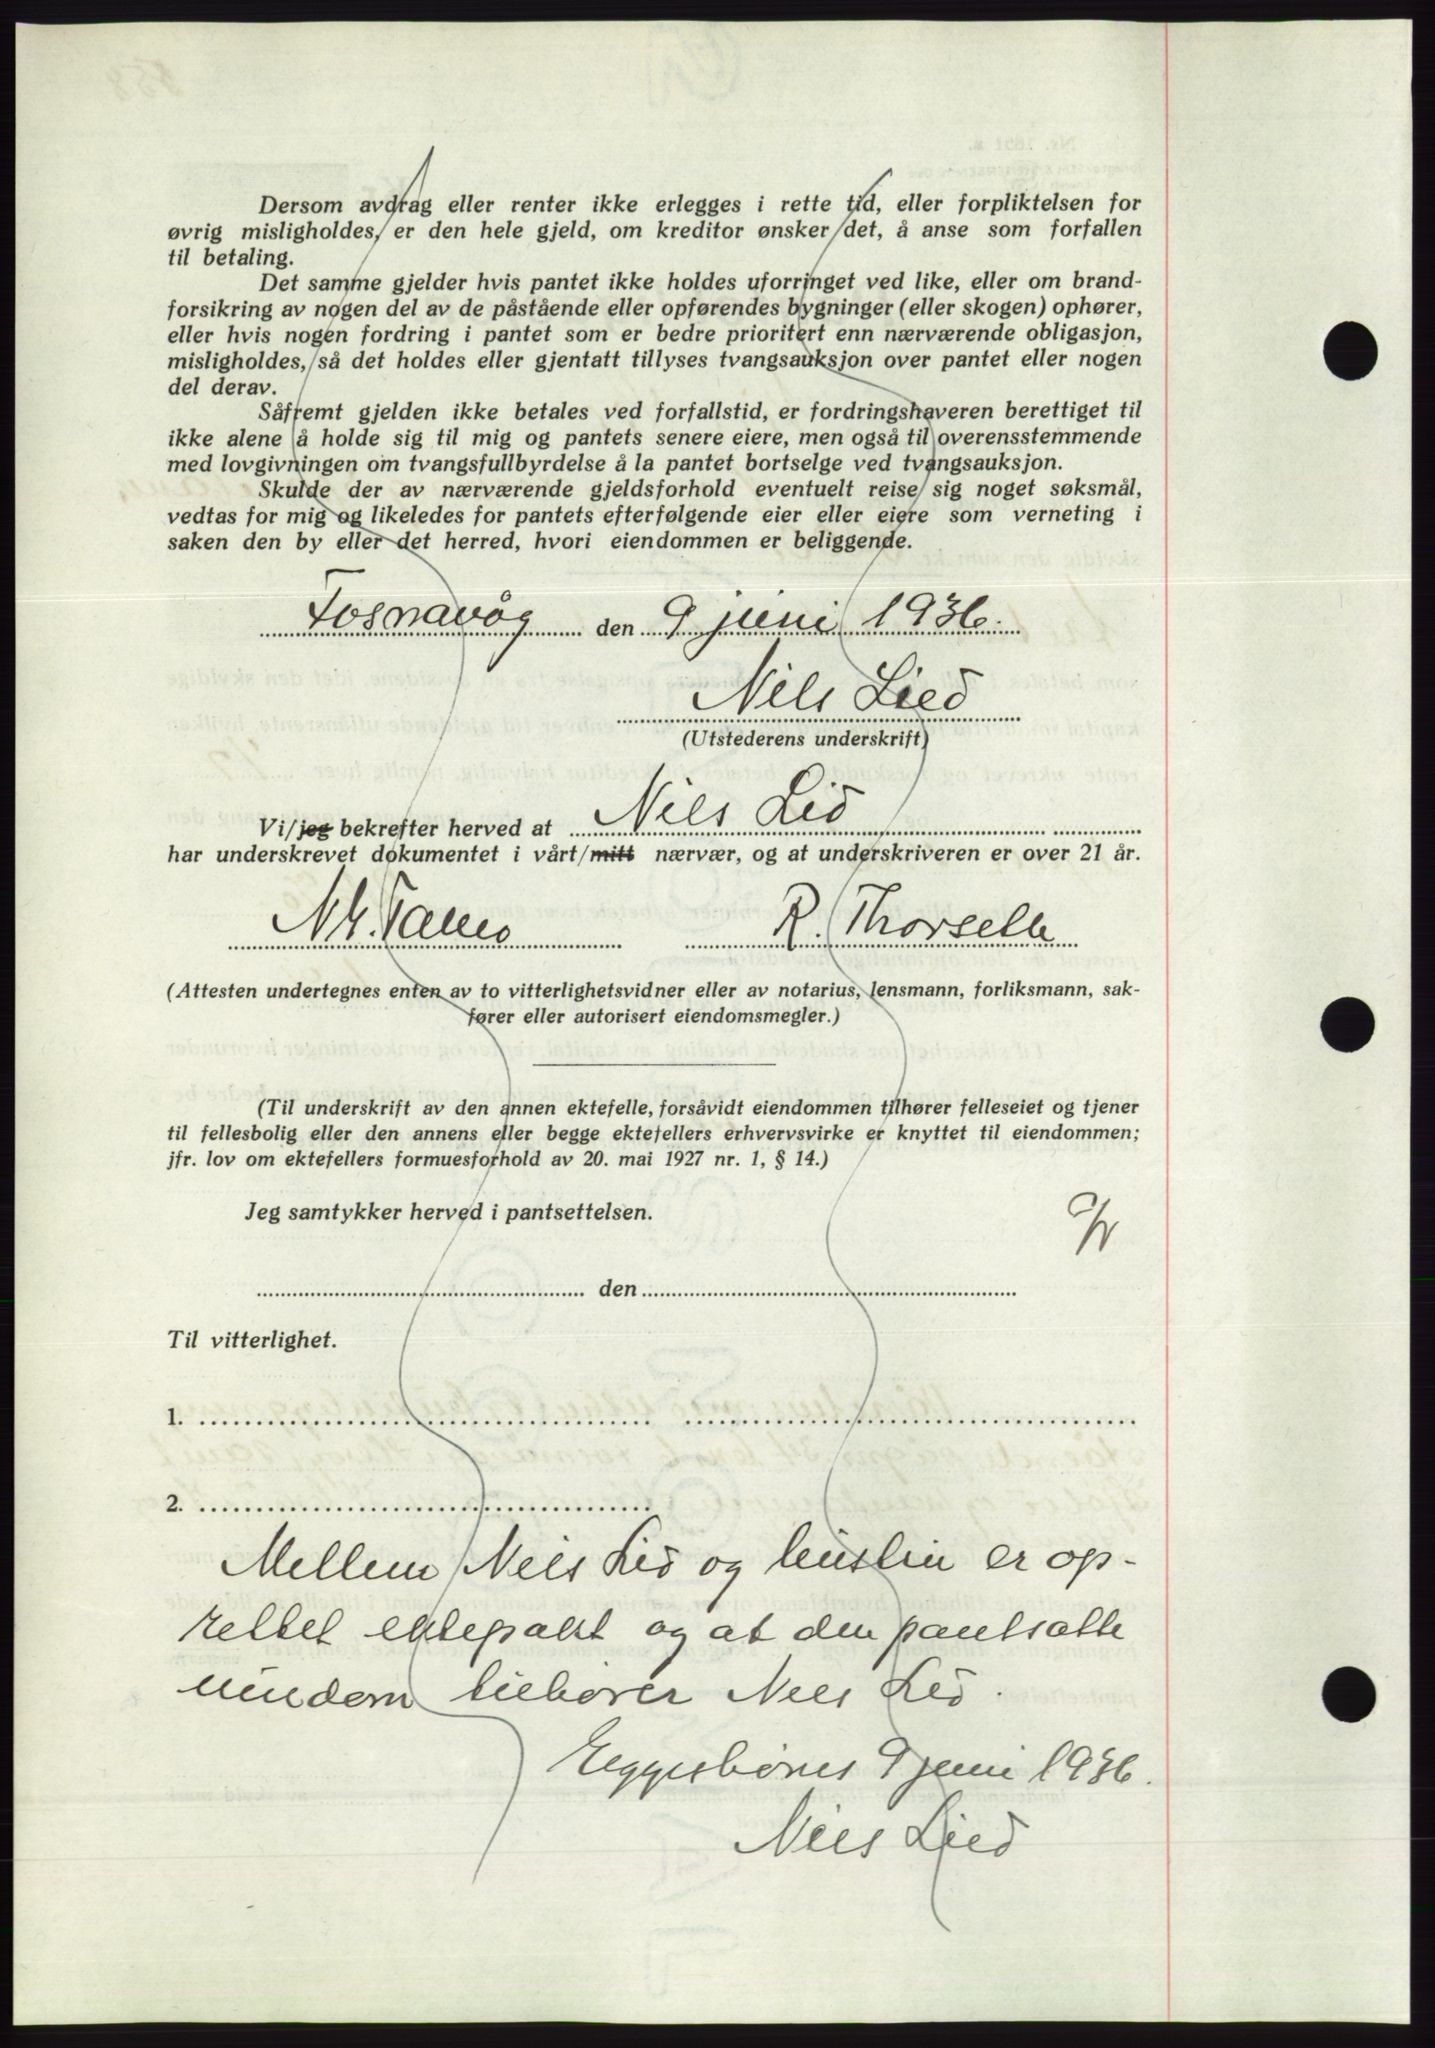 Dersom avdrag eller renter ikke erlegges i rette tid, eller forpliktelsen for
øvrig misligholdes, er den hele gjeld, om kreditor ønsker det, å anse som forfallen
til betaling.
Det samme gjelder hvis pantet ikke holdes uforringet ved like, eller om brand-
forsikring av nogen del av de påstående eller opførendes bygninger (eller skogen) ophører,
eller hvis nogen fordring i pantet som er bedre prioritert enn nærværende obligasjon,
misligholdes, så det holdes eller gjentatt tillyses tvangsauksjon over pantet eller nogen
del derav.
Såfremt gjelden ikke betales ved forfallstid, er fordringshaveren berettiget til
ikke alene å holde sig til mig og pantets senere eiere, men også til overensstemmende
med lovgivningen om tvangsfullbyrdelse å la pantet bortselge ved tvangsauksjon.
Skulde der av nærværende gjeldsforhold eventuelt reise sig noget søksmål,
vedtas for mig og likeledes for pantets efterfølgende eier eller eiere som verneting i
saken den by eller det herred, hvori eiendommen er beliggende.
Fosnavåg den 9 juni 1936.
Nils Lied
(Utstederens underskrift)
Vi/jeg bekrefter herved at Nils Lid
har underskrevet dokumentet i vårt/mitt nærvær, og at underskriveren er over 21 år.
R. Thorseth
(Attesten undertegnes enten av to vitterlighetsvidner eller av notarius, lensmann, forliksmann, sak-
fører eller autorisert eiendomsmegler.)
(Til underskrift av den annen ektefelle, forsåvidt eiendommen tilhører felleseiet og tjener
til fellesbolig eller den annens eller begge ektefellers erhvervsvirke er knyttet til eiendommen;
jfr. lov om ektefellers formuesforhold av 20. mai 1927 nr. 1, § 14.)
Jeg samtykker herved i pantsettelsen.
den
Til vitterlighet.
1.
2.
Mellem Nils Lid og hustru er op-
rettet ektepakt og at den pantsatte
eiendom tilhører Nils Lid.
Eggesbønes 9 juni 1936.
Nils Lied